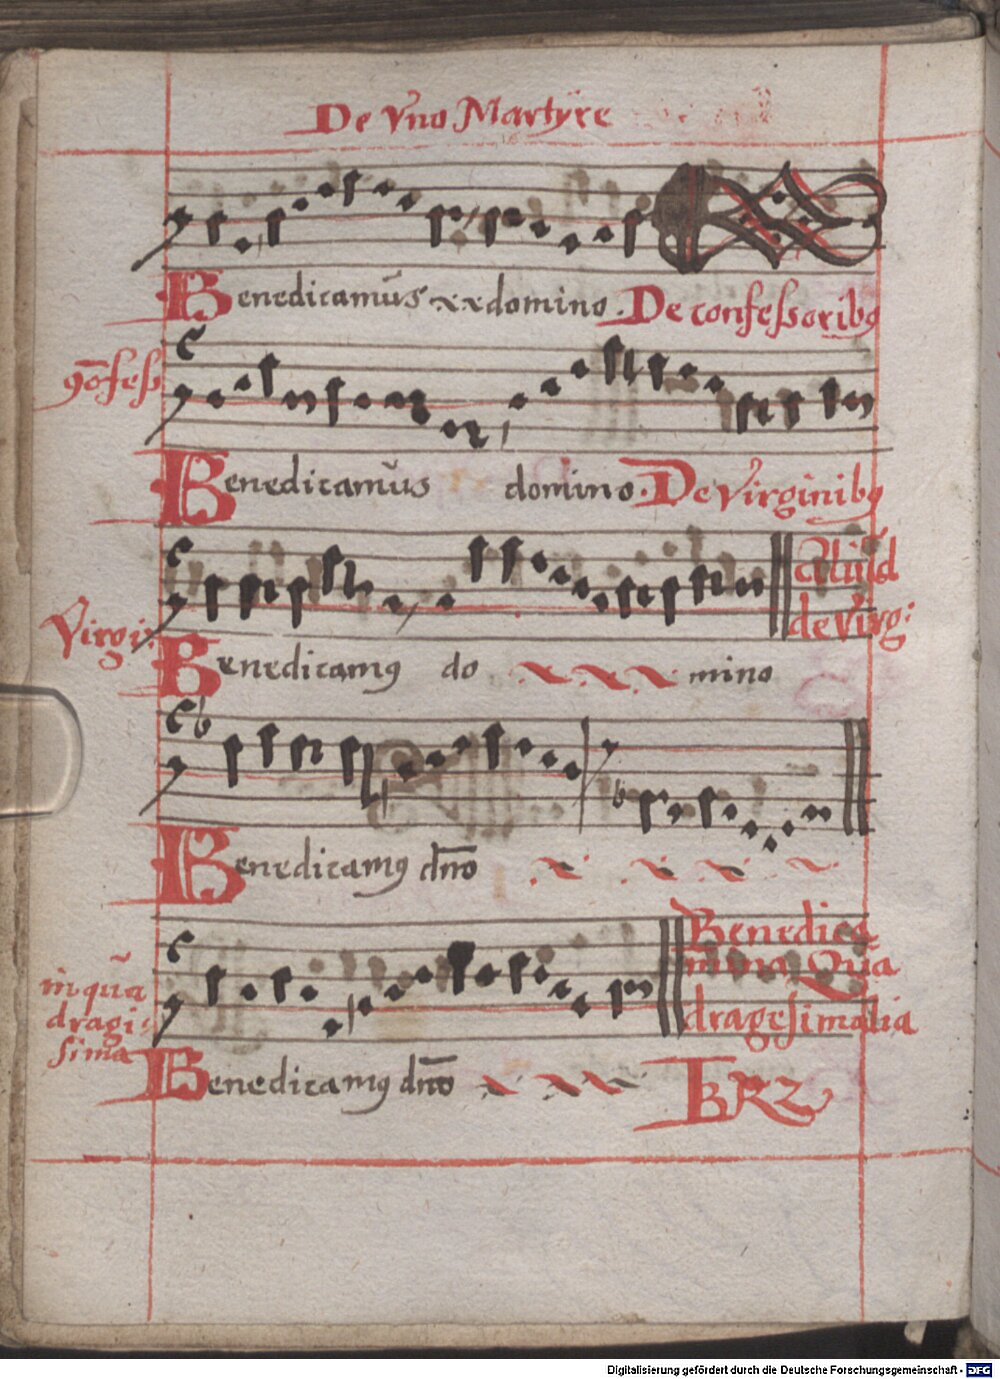 De Vno Martyre
Benedicamūs domino. De confessoribꝯ
ꝯ̄fess
Benedicamūs domino. De Virginibꝯ
Aliūd
de Virg:
Virgi:
Benedicamꝯ do mino
Benedicamꝯ dn̄o
Benedica
mina Qūa
dragesimalia
in qūa
dragi
sima
Benedicamꝯ dn̄o
Digitalisierung gefördert durch die Deutsche Forschungsgemeinschaft - DFG